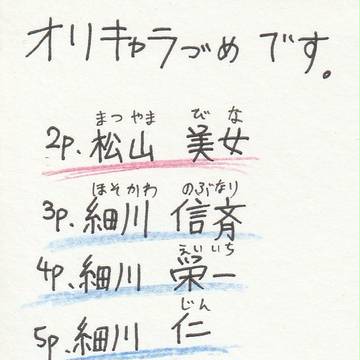 オリキャラづめ です。
まつ やま び な
2p. 松山 美女
ほそ かわ のぶなり
3p. 細川 信斉
えいいち
4p. 細川 栄一
じん
5p. 細川 仁